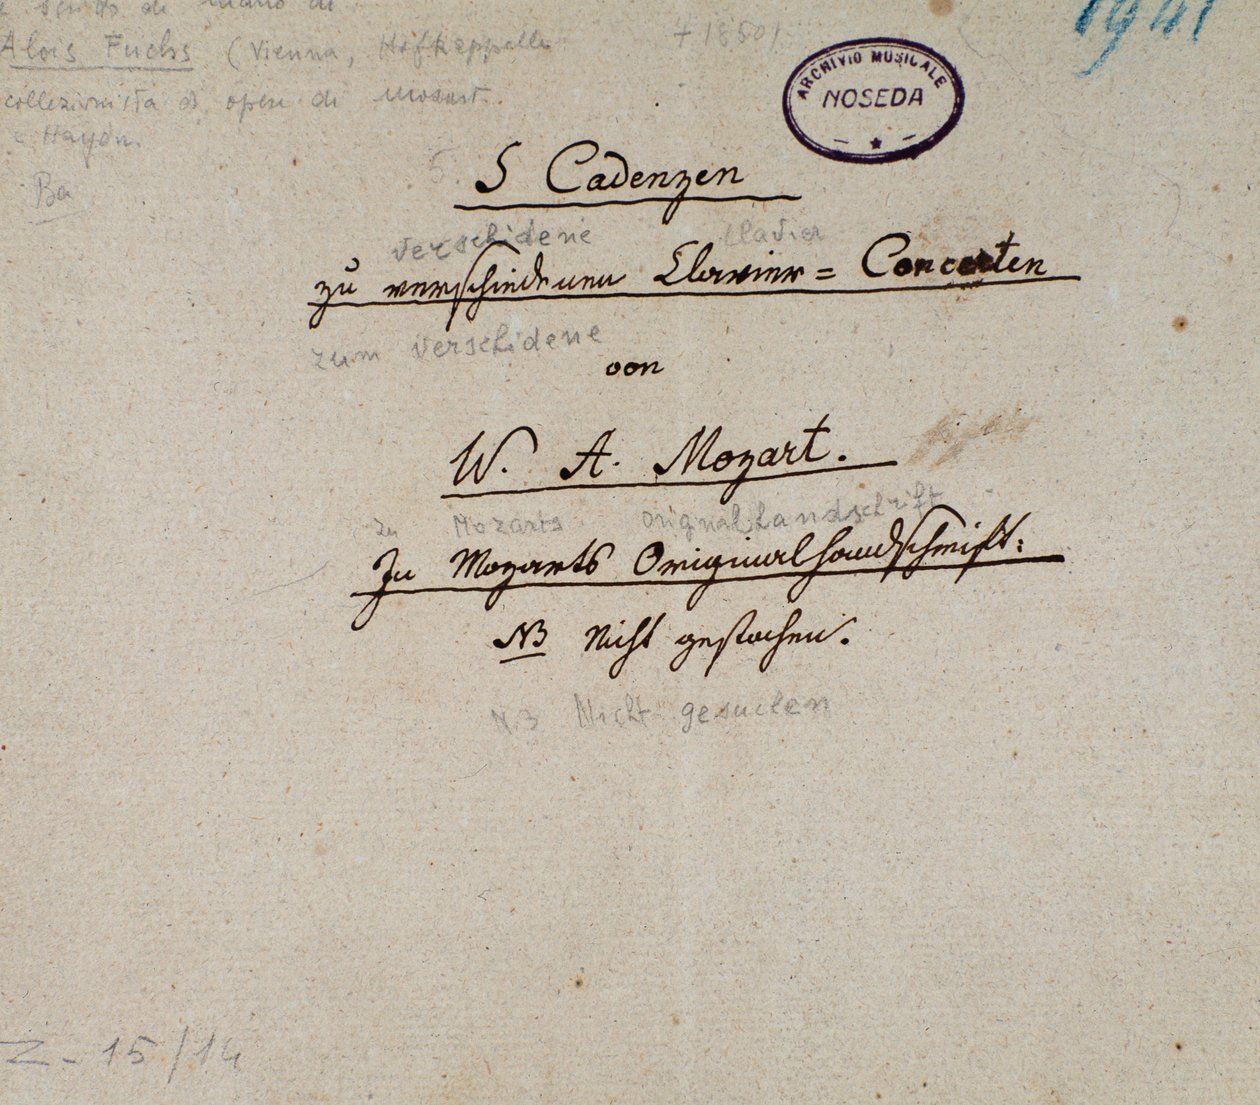 di mano di
Alois Fuchs (Vienna, Hofkappelle † 1850)
collezionista di opere di Mozart
e Haydn.
Ba
1941
ARCHIVIO MUSICALE
NOSEDA
5
5 Cadenzen
verschidene Clavier
zu verschiedenen Clavier= Concerten
zum verschidene
von
W. A. Mozart.
Zu Mozarts Originalhandschrift
In Mozarts Originalhandschrift:
NB Nicht gestochen.
N.3 Nicht gesuclen
Z-15/14